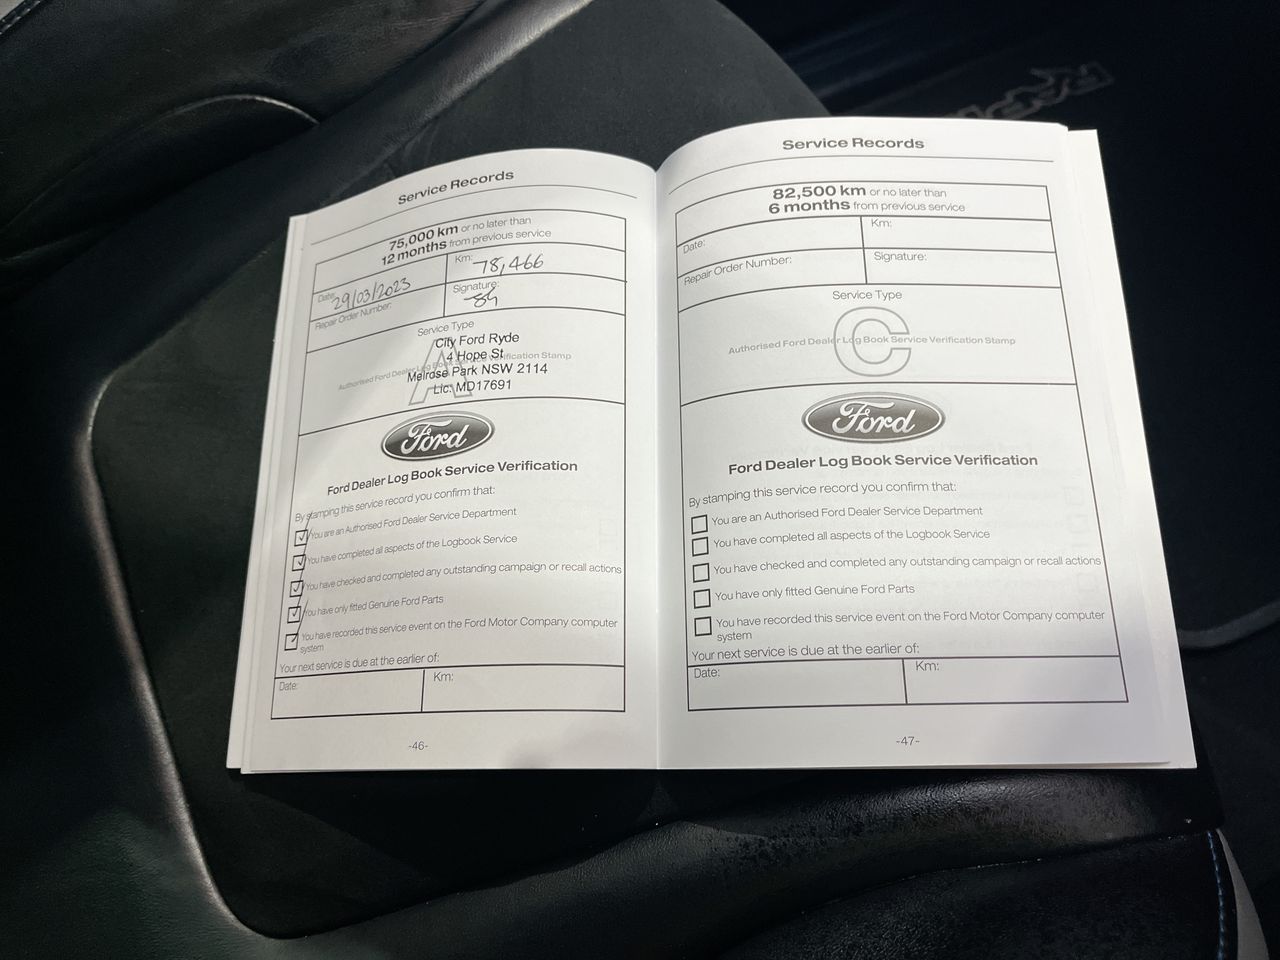 Service Records
75,000 km or no later than
12 months from previous service
Date: 29/03/2023
Km: 78,466
Repair Order Number:
Signature:
Service Type
A
Authorised Ford Dealer Log Book Service Verification Stamp
City Ford Ryde
4 Hope St
Melrose Park NSW 2114
Lic: MD17691
Ford
Ford Dealer Log Book Service Verification
By stamping this service record you confirm that:
You are an Authorised Ford Dealer Service Department
You have completed all aspects of the Logbook Service
You have checked and completed any outstanding campaign or recall actions
You have only fitted Genuine Ford Parts
You have recorded this service event on the Ford Motor Company computer
system
Your next service is due at the earlier of:
Date:
Km:
-46-
Service Records
82,500 km or no later than
6 months from previous service
Date:
Km:
Repair Order Number:
Signature:
Service Type
C
Authorised Ford Dealer Log Book Service Verification Stamp
Ford
Ford Dealer Log Book Service Verification
By stamping this service record you confirm that:
You are an Authorised Ford Dealer Service Department
You have completed all aspects of the Logbook Service
You have checked and completed any outstanding campaign or recall actions
You have only fitted Genuine Ford Parts
You have recorded this service event on the Ford Motor Company computer
system
Your next service is due at the earlier of:
Date:
Km:
-47-